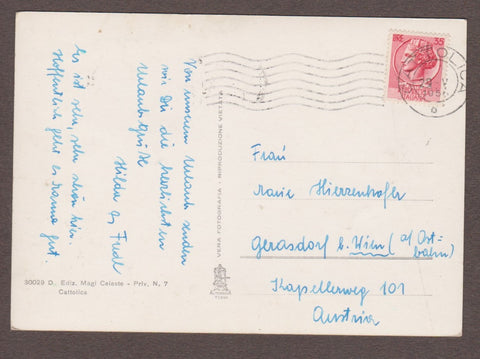 Von unserem Urlaub senden
wir Dir die herzlichsten
Urlaubsgrüße
Hilda u. Fredl
Es ist sehr, sehr schön hier.
Hoffentlich geht es Mama gut.
30029 D. Ediz. Magi Celeste - Priv. N. 7
Cattolica
VERA FOTOGRAFIA - RIPRODUZIONE VIETATA
LIRE 35
CATTOLICA
Frau
Marie Hierzenhofer
Gerasdorf b. Wien (a/ Ost-
bahn)
Kapellerweg 101
Austria